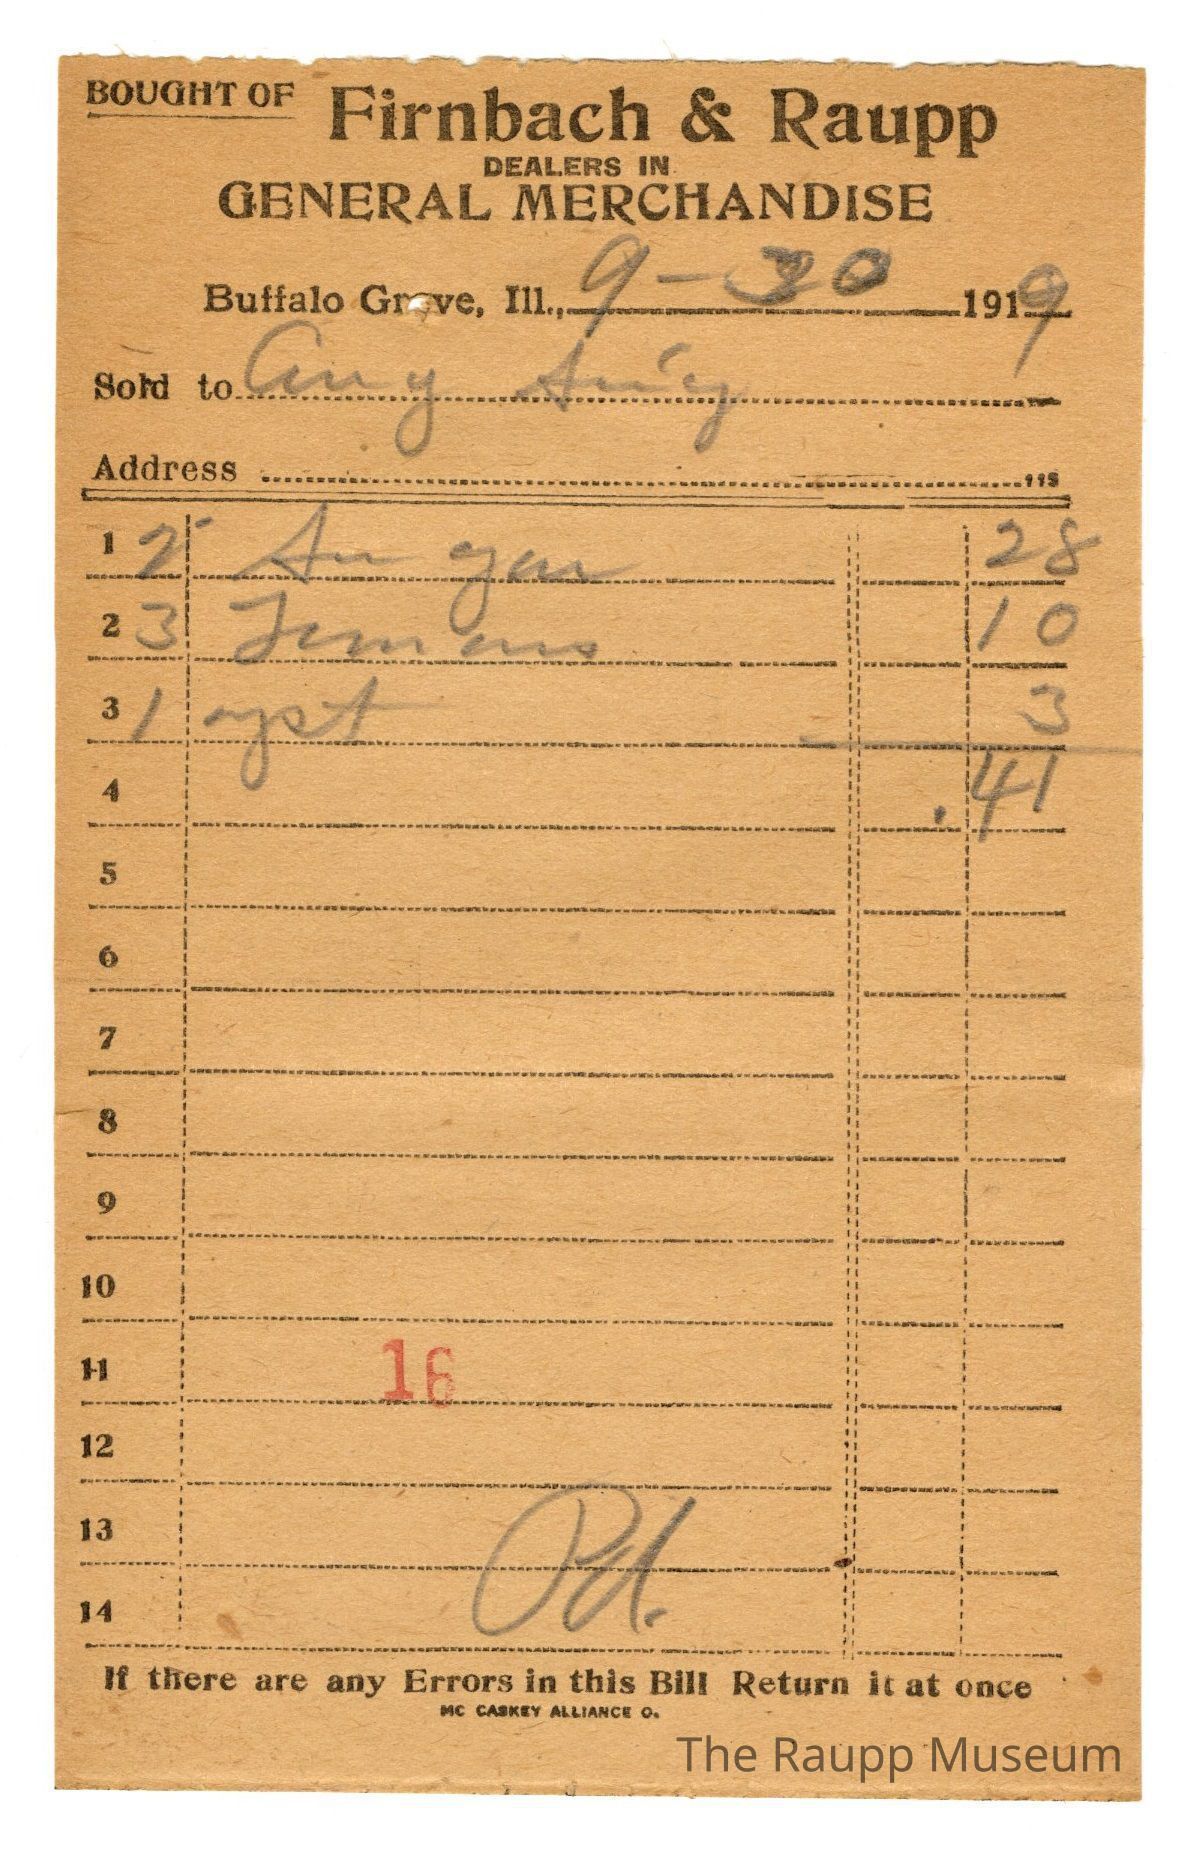 BOUGHT OF Firnbach & Raupp
DEALERS IN
GENERAL MERCHANDISE
Buffalo Grove, Ill., 9-30 1919
Sold to
Address
1 2 Sugar 28
2 3 Lemons 10
3 1 yst 3
4 .41
5
6
7
8
9
10
11 16
12
13
Pd.
14
If there are any Errors in this Bill Return it at once
MC CASKEY ALLIANCE O.
The Raupp Museum